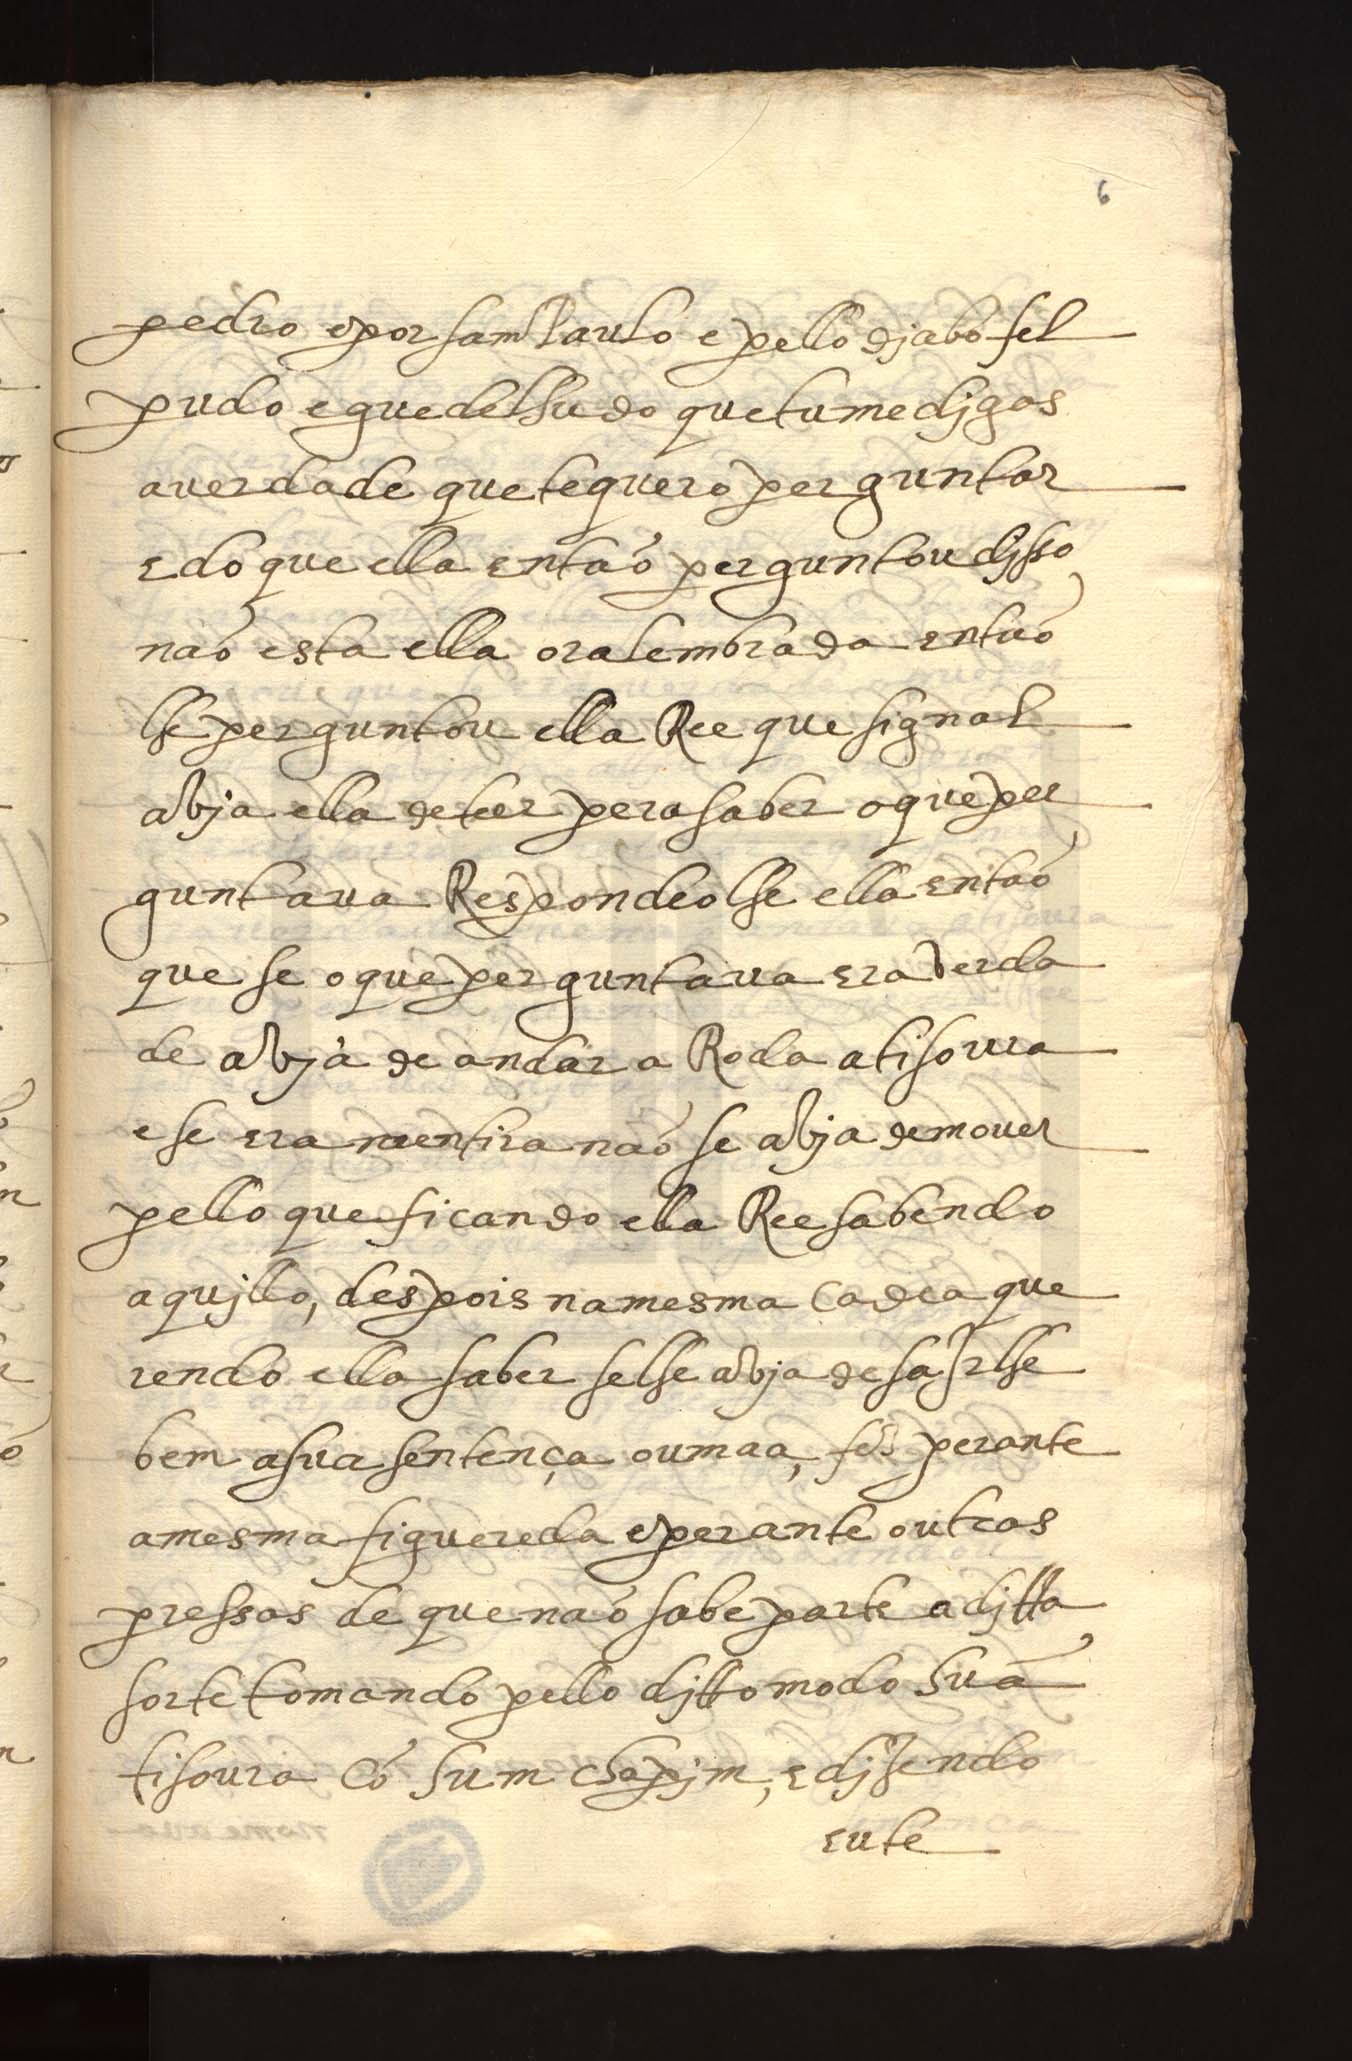 6
pedro e por sam Paulo e pello djabo fel
pudo e guedelhudo que tu me djgas
a uerdade que te quero perguntar
e do que ella entaõ perguntou djsso
naõ esta ella ora lembrada entaõ
lhe perguntou ella Ree que signal
avja ella de ter pera saber o que per
guntaua Respondeo lhe ella entaõ
que se o que perguntaua era verda
de avja de andar a Roda a tisoura
e se era mentira naõ se avja de mouer
pello que ficando ella Ree sabendo
aqujllo, despois na mesma cadea que
rendo ella saber se lhe avja de sajr lhe
bem a sua sentença ou maa, fes perante
a mesma figuereda e perante outras
pressas de que naõ sabe parte a djtta
sorte tomando pello djtto modo huã
tisoura cõ hum chapjm, e djzendo
eu te